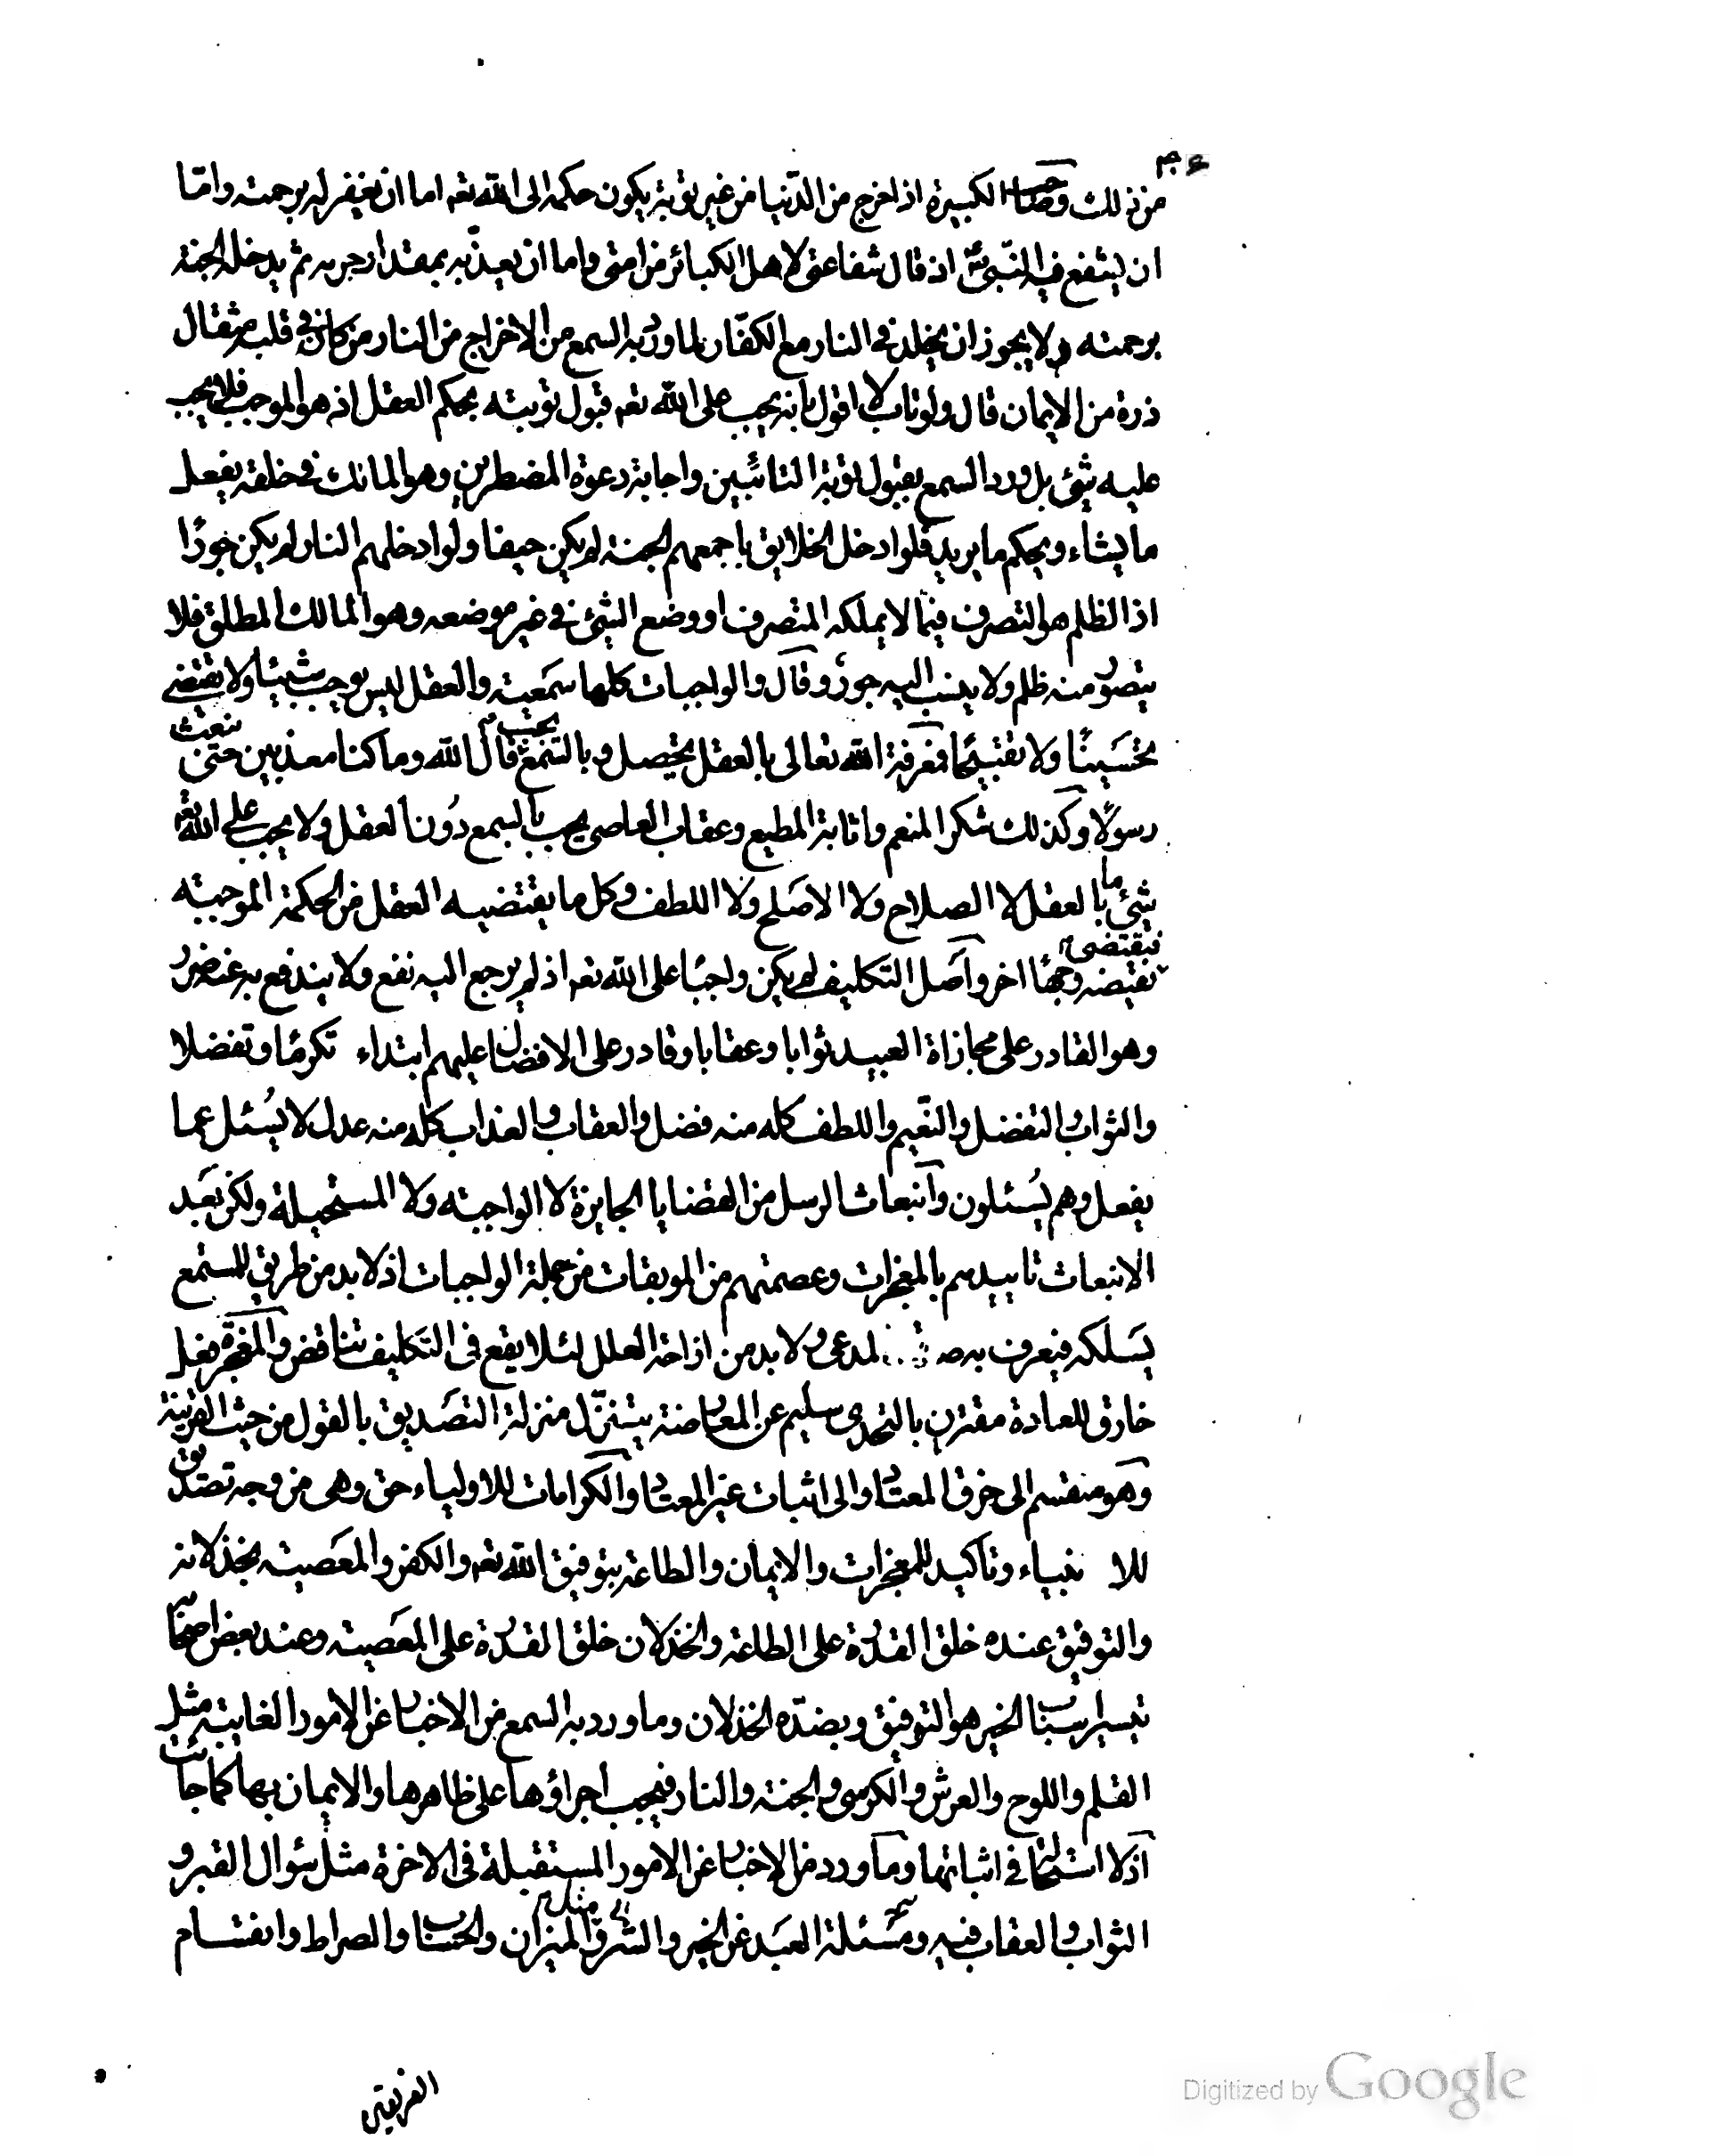 من ذلك وصاحب الكبيرة اذا خرج من الدّنيا من غير توبة يكون حكمه الى الله تعه اما ان يغفر له برحمته وامّا
ان يشفع فيه النّبىّ اذ قال شفاعتى لاهل الكبائر من امتى واما ان يعذّبه بمقدار جرمه ثم يدخله الجنة
برحمته ولا يجوز ان يخلد فى النار مع الكفّار لما ورد به السمع من الاخراج من النار من كان فى قلبه مثقال
ذرة من الايمان قال ولو تاب لا اقول بانه يجب على الله تعه قبول توبته بحكم العقل اذ هو الموجب فلا يجب
عليه شئ بل ورد السمع بقبول توبة التائبين واجابة دعوة المضطرين وهو المالك فى خلقه يفعل
ما يشاء ويحكم ما يريد فلو ادخل الخلايق باجمعهم الجنة لم يكن حيفا ولو ادخلهم النار لم يكن جورًا
اذ الظلم هو التصرف فيما لا يملكه المتصرف او وضع الشئ فى غير موضعه وهو المالك المطلق فلا
يتصوّر منه ظلم ولا ينسب اليه جورٌ وقال والواجبات كلها سمَعية والعقل ليس يوجب شيئا ولا يقتضى
تحسَينًا ولا تقبيحًا فمعرفة الله تعالى بالعقل يحصل وبالسّمع يجب قال الله وما كنا معذبين حتى نبعث
رسولًا وكذلك شكر المنعم واثابة المطيع وعقاب العاصى يجب بالسمع دُون العقل ولا يجب على الله تعه
شئ ما بالعقل لا الصلاح ولا الاصَلح ولا اللطف وكل ما يقتضيه العقل من الحكمة الموجبته
فيقتضى نقيضه وجهًا اخر واصَل التكليف لم يكن واجبًا على الله تعه اذ لم يرجع اليه نفع ولا يندفع به عنه ضرٌ
وهو القادر على مجازاة العبيد ثوابا وعقابا وقادر على الافضال عليهم ابتداء تكرمًا وتفضلا
والثواب والتفضل والنّعيم واللطف كله منه فضل والعقاب والعذاب كله منه عدل لا يُسئل عما
يفعل وهم يُسئلون وانبعاث الرسل من القضايا الجايزة لا الواجبته ولا المستحيلة ولكن بَعد
الانبعاث تاييدهم بالمعجزات وعصمتهم من الموبقات من جملة الواجبات اذ لا بد من طريق للمستمع
يسَلكه فيعرف به المدعى ولا بد من ازاحة العلل لئلا يقع فى التكليف تناقض والمعجزة فعل
خارق للعادة مقترن بالتحدى سليم عن المعارضة يتنزّل منزلة التصَديق بالقول من حيث القرينة
وهو منقسم الى خرق المعتاد والى اثبات غير المعتاد والكرامات للاولياء حق وهى من وجه تصَديق
للا نبياء وتاكيد للمعجزات والايمان والطاعة بتوفيق الله تعه والكفر والمعَصية بخذلانه
والتوفيق عنده خلق القدرة على الطاعة والخذلان خلق القدرة على المعَصية وعند بعض اصحابه
تيسير اسباب الخير هو التوفيق وبضدّه الخذلان وما ورد به السمع من الاخبار عن الامور الغايبة مثل
القلم واللوح والعرش والكرسى والجنة والنار فيجب اجراؤها على ظاهرها والايمان بها كما جائت
اذ لا استحالة فى اثباتها وما ورد من الاخبار عن الامور المستقبلة فى الاخرة مثل سؤال القبر و
الثواب والعقاب فيه ومسَئلة العبَد عن الخير والشر ومثل الميزان والحساب والصراط وانقسام
الفريقين
Digitized by Google